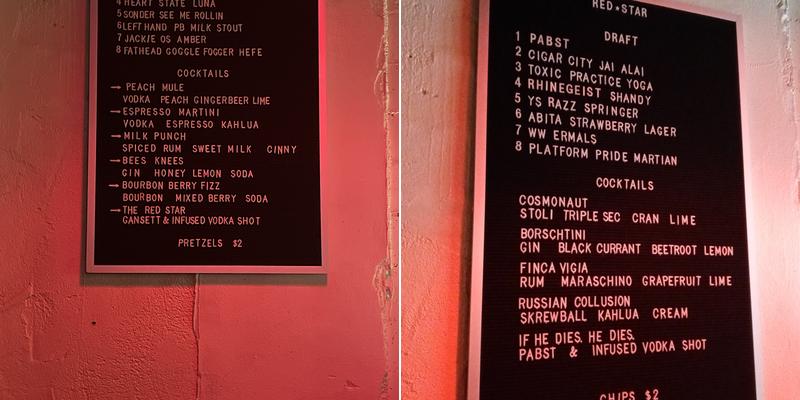 4 HEART STATE LUNA
5 SONDER SEE ME ROLLIN
6 LEFT HAND PB MILK STOUT
7 JACKIE OS AMBER
8 FATHEAD GOGGLE FOGGER HEFE
COCKTAILS
→ PEACH MULE
VODKA PEACH GINGERBEER LIME
→ ESPRESSO MARTINI
VODKA ESPRESSO KAHLUA
→ MILK PUNCH
SPICED RUM SWEET MILK CINNY
→ BEES KNEES
GIN HONEY LEMON SODA
→ BOURBON BERRY FIZZ
BOURBON MIXED BERRY SODA
→ THE RED STAR
GANSETT & INFUSED VODKA SHOT
PRETZELS $2
RED★STAR
DRAFT
1 PABST
2 CIGAR CITY JAI ALAI
3 TOXIC PRACTICE YOGA
4 RHINEGEIST SHANDY
5 YS RAZZ SPRINGER
6 ABITA STRAWBERRY LAGER
7 WW ERMALS
8 PLATFORM PRIDE MARTIAN
COCKTAILS
COSMONAUT
STOLI TRIPLE SEC CRAN LIME
BORSCHTINI
GIN BLACK CURRANT BEETROOT LEMON
FINCA VIGIA
RUM MARASCHINO GRAPEFRUIT LIME
RUSSIAN COLLUSION
SKREWBALL KAHLUA CREAM
IF HE DIES, HE DIES.
PABST & INFUSED VODKA SHOT
CHIPS $2